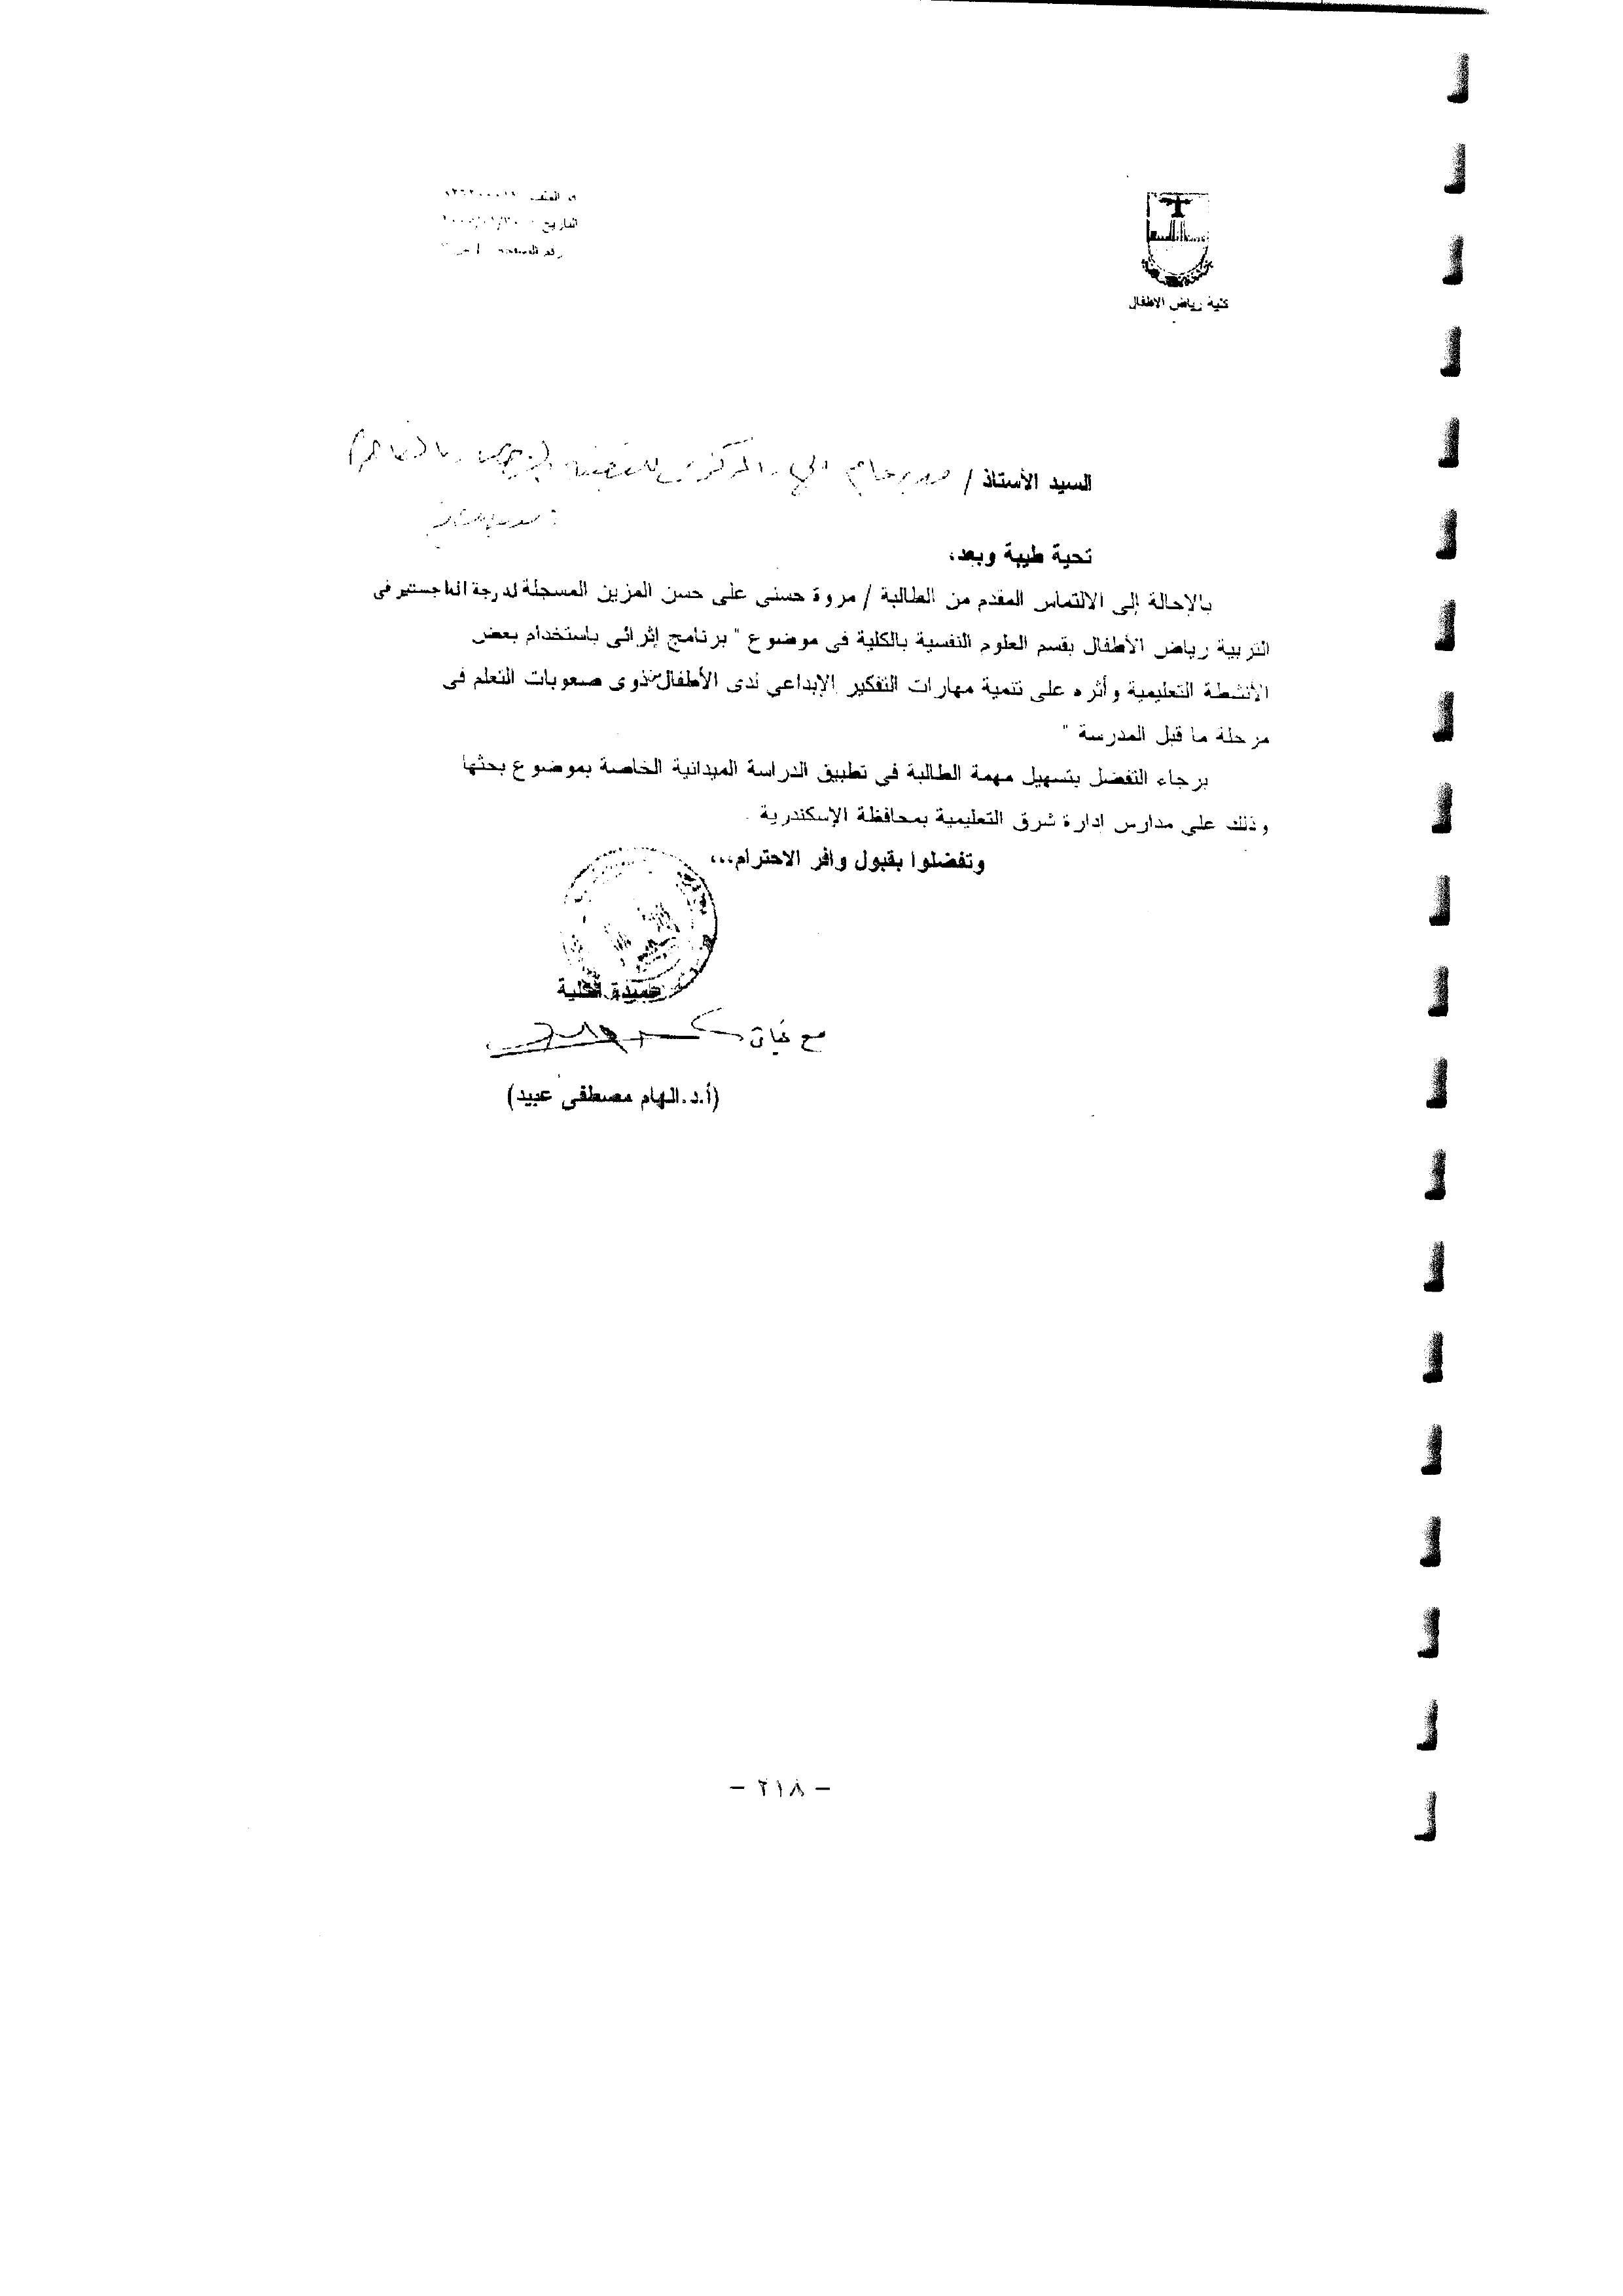 التاريخ
رقم الصفحة
كلية رياض الاطفال
السيد الأستاذ / مدير عام
تحية طيبة وبعد،
بالإحالة إلى الالتماس المقدم من الطالبة / مروة حسنى على حسن المزين المسجلة لدرجة الماجستير فى
التربية رياض الأطفال بقسم العلوم النفسية بالكلية فى موضوع " برنامج إثرائى باستخدام بعض
الأنشطة التعليمية وأثره على تنمية مهارات التفكير الإبداعي لدى الأطفال ذوى صعوبات التعلم فى
مرحلة ما قبل المدرسة "
برجاء التفضل بتسهيل مهمة الطالبة فى تطبيق الدراسة الميدانية الخاصة بموضوع بحثها
وذلك على مدارس ادارة شرق التعليمية بمحافظة الإسكندرية .
وتفضلوا بقبول وافر الاحترام،،،
عميدة الكلية
(أ.د.الهام مصطفى عبيد)
- ٢١٨ -